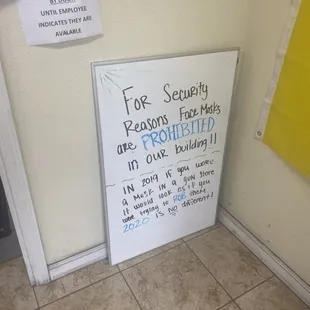 BY DOOR
UNTIL EMPLOYEE
INDICATES THEY ARE
AVALABLE
For Security
Reasons Face Masks
are PROHIBITED
in our building!!
IN 2019 if you wore
a Mask IN a GUN STORE
it would look as if you
were trying to ROB them
2020 is NO different!